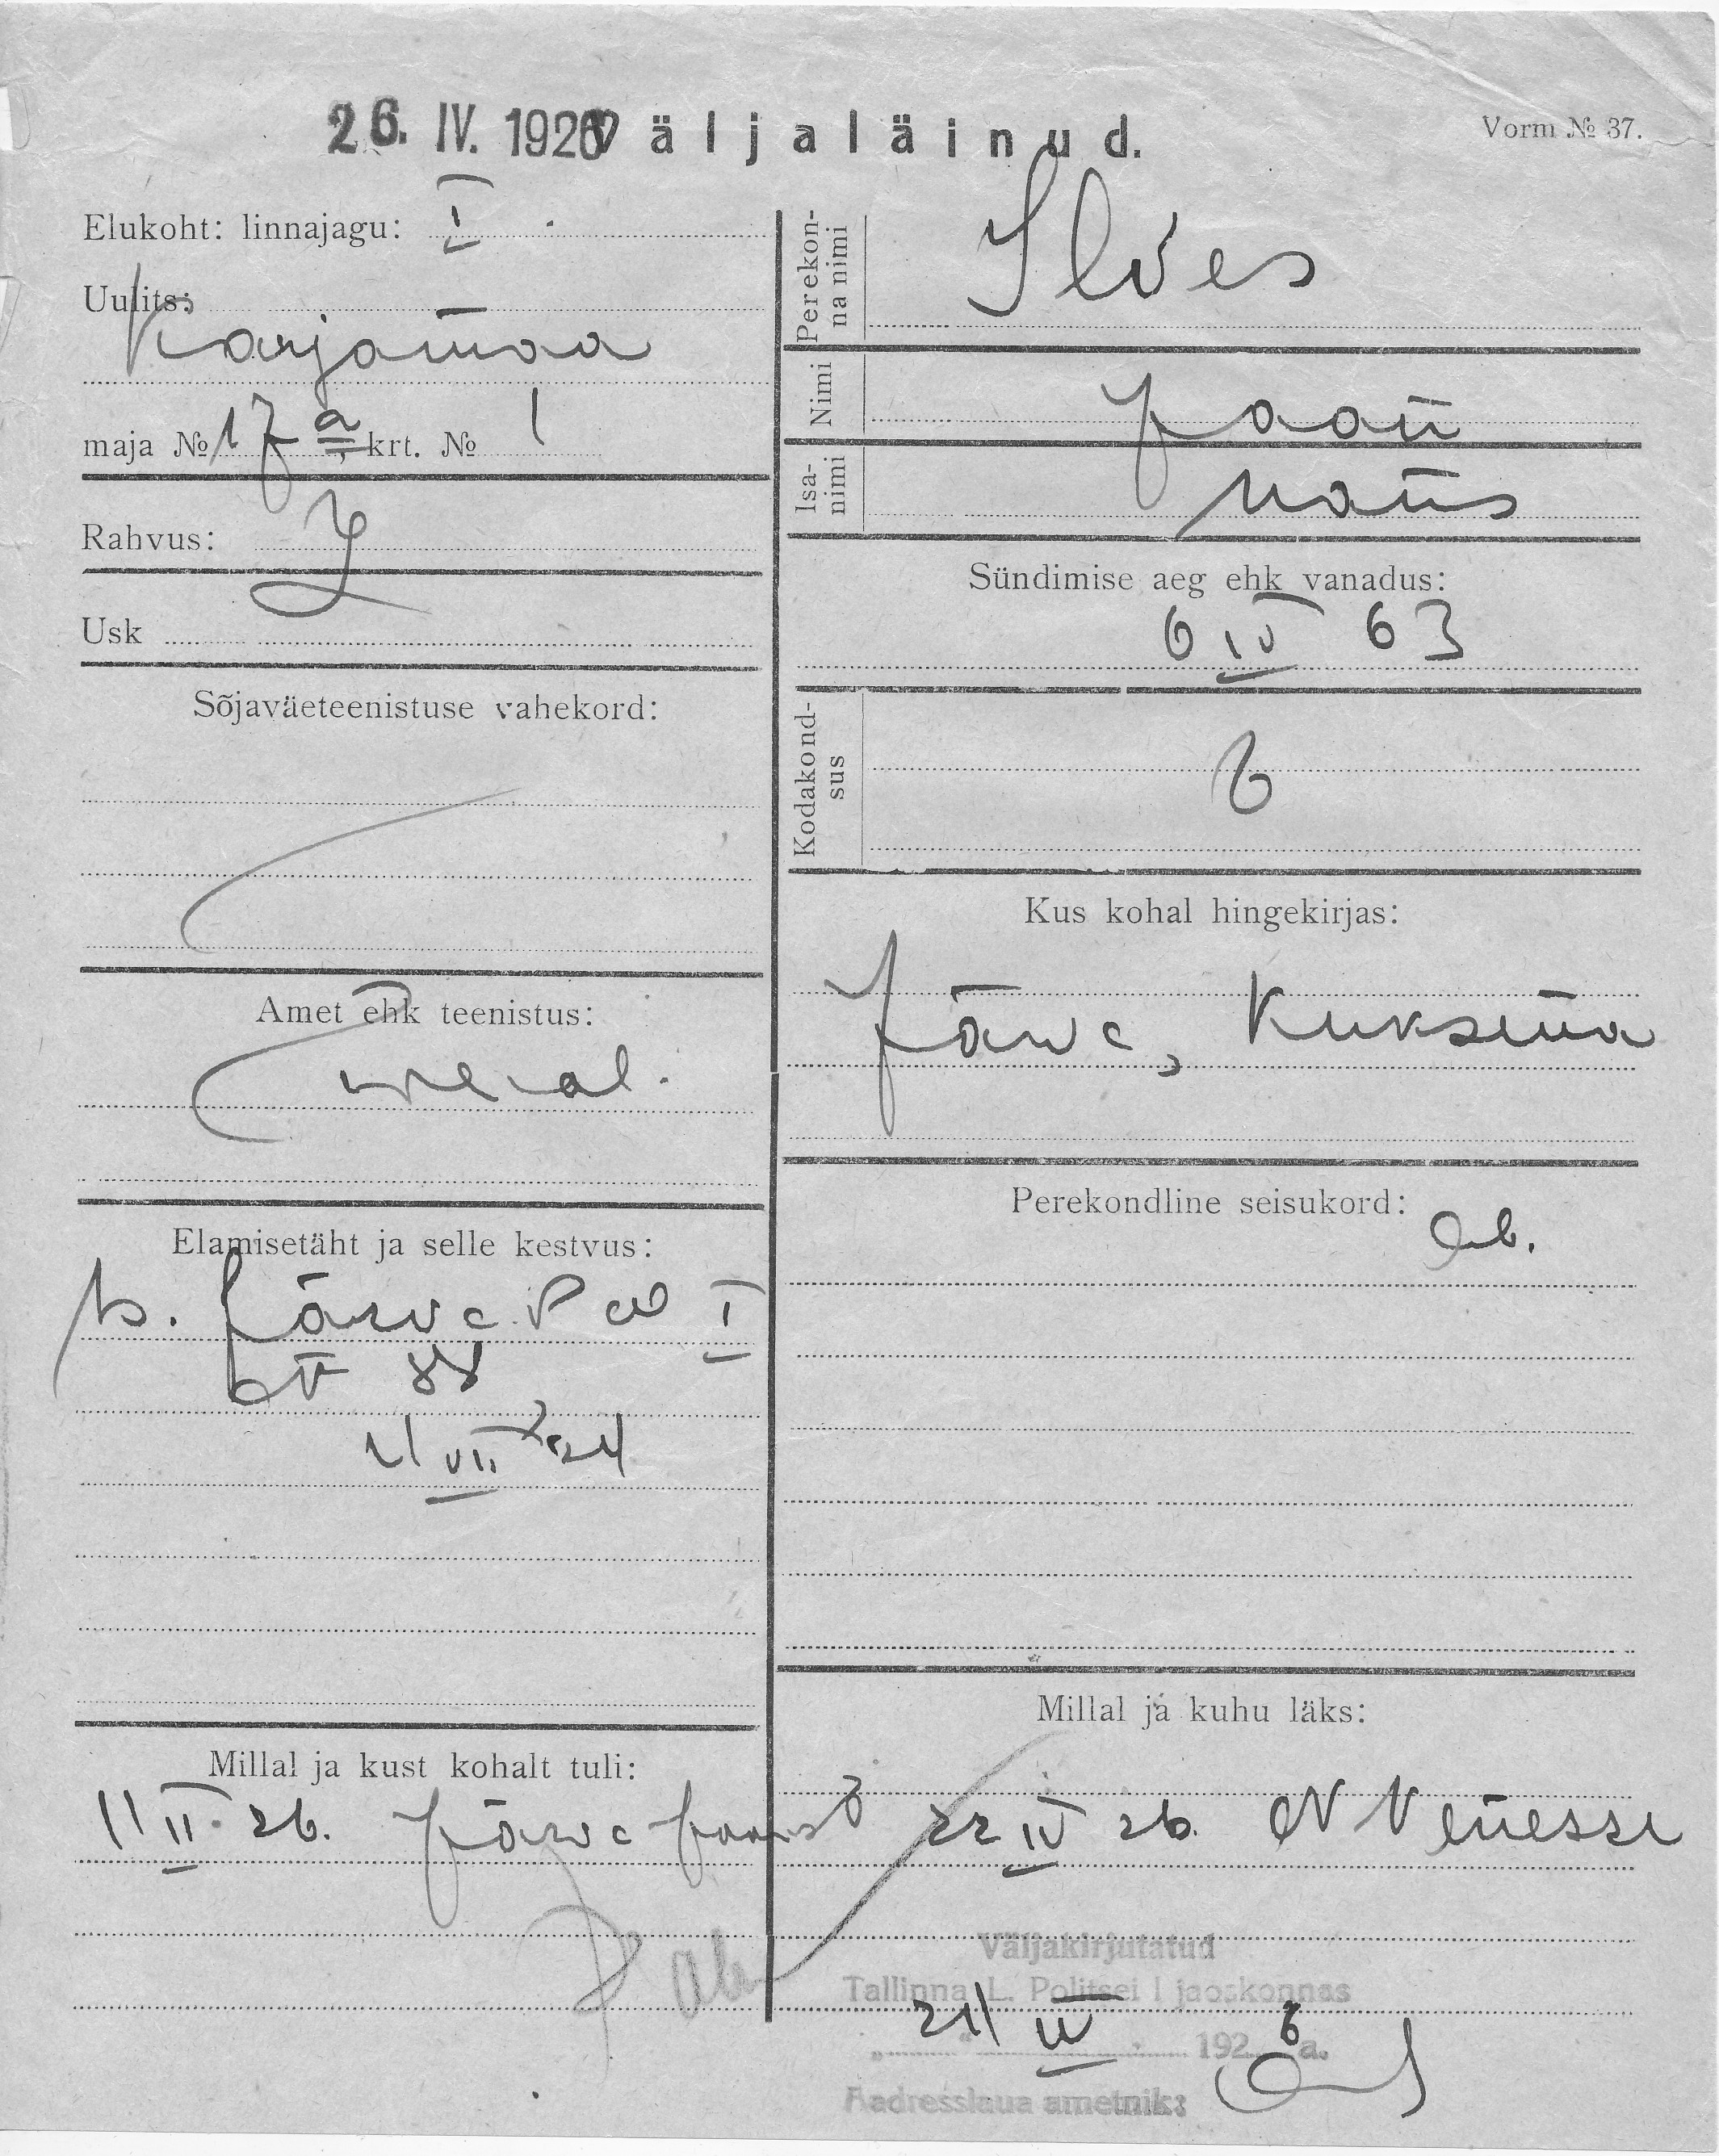 26. IV. 1926
Väljaläinud.
Vorm № 37.
Elukoht: linnajagu: I
Uulits:
Karjamaa
maja № 17 a, krt. № 1
Rahvus:
Usk
Sõjaväeteenistuse vahekord:
Amet ehk teenistus:
Elamisetäht ja selle kestvus:
Järva
21 VII 24
Millal ja kust kohalt tuli:
11 II. 26. Järva
Perekonna nimi Ilves
Nimi Jaan
Isanimi Hans
Sündimise aeg ehk vanadus:
6 IV 63
Kodakondsus
Kus kohal hingekirjas:
Järva, Kuksema
Perekondline seisukord:
ab.
Millal ja kuhu läks:
22 IV 26.
Väljakirjutatud
Tallinna L. Politsei I jaoskonnas
24 IV 1926 a.
Aadresslaua ametnik: